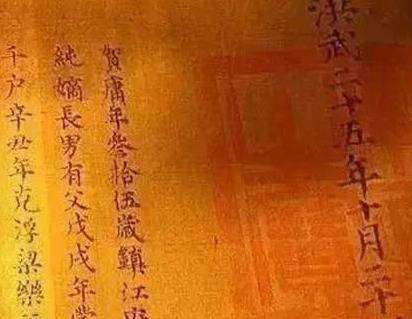 洪武二十五年十月二十
賀庸年叁拾伍歲鎮江
純嫡長男有父戊戌年
千戶辛丑年克浮梁樂